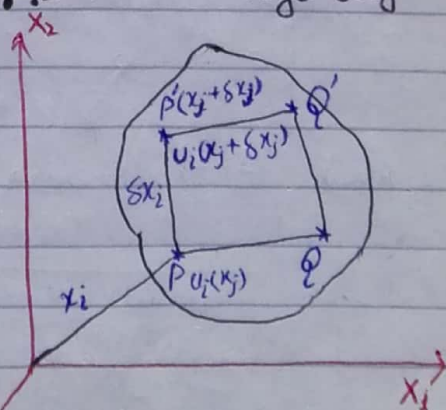 X₂
P'(xⱼ+δxⱼ)
Q'
uᵢ(xⱼ+δxⱼ)
δxᵢ
P uᵢ(xⱼ)
Q
xᵢ
X₁